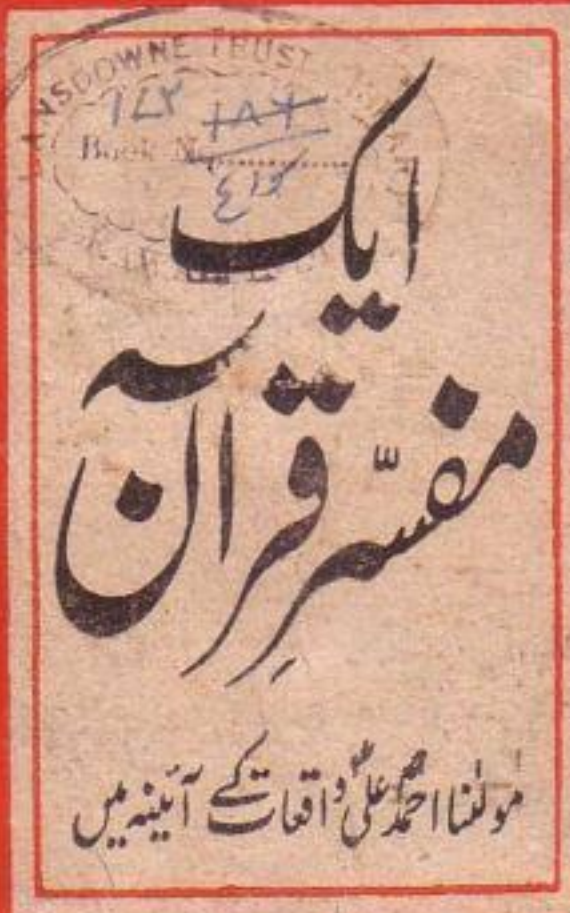 LANSDOWNE TRUST
Book No.
ایک
مفسّرِ قرآن
مولٰنا احمد علیؒ واقعات کے آئینہ میں